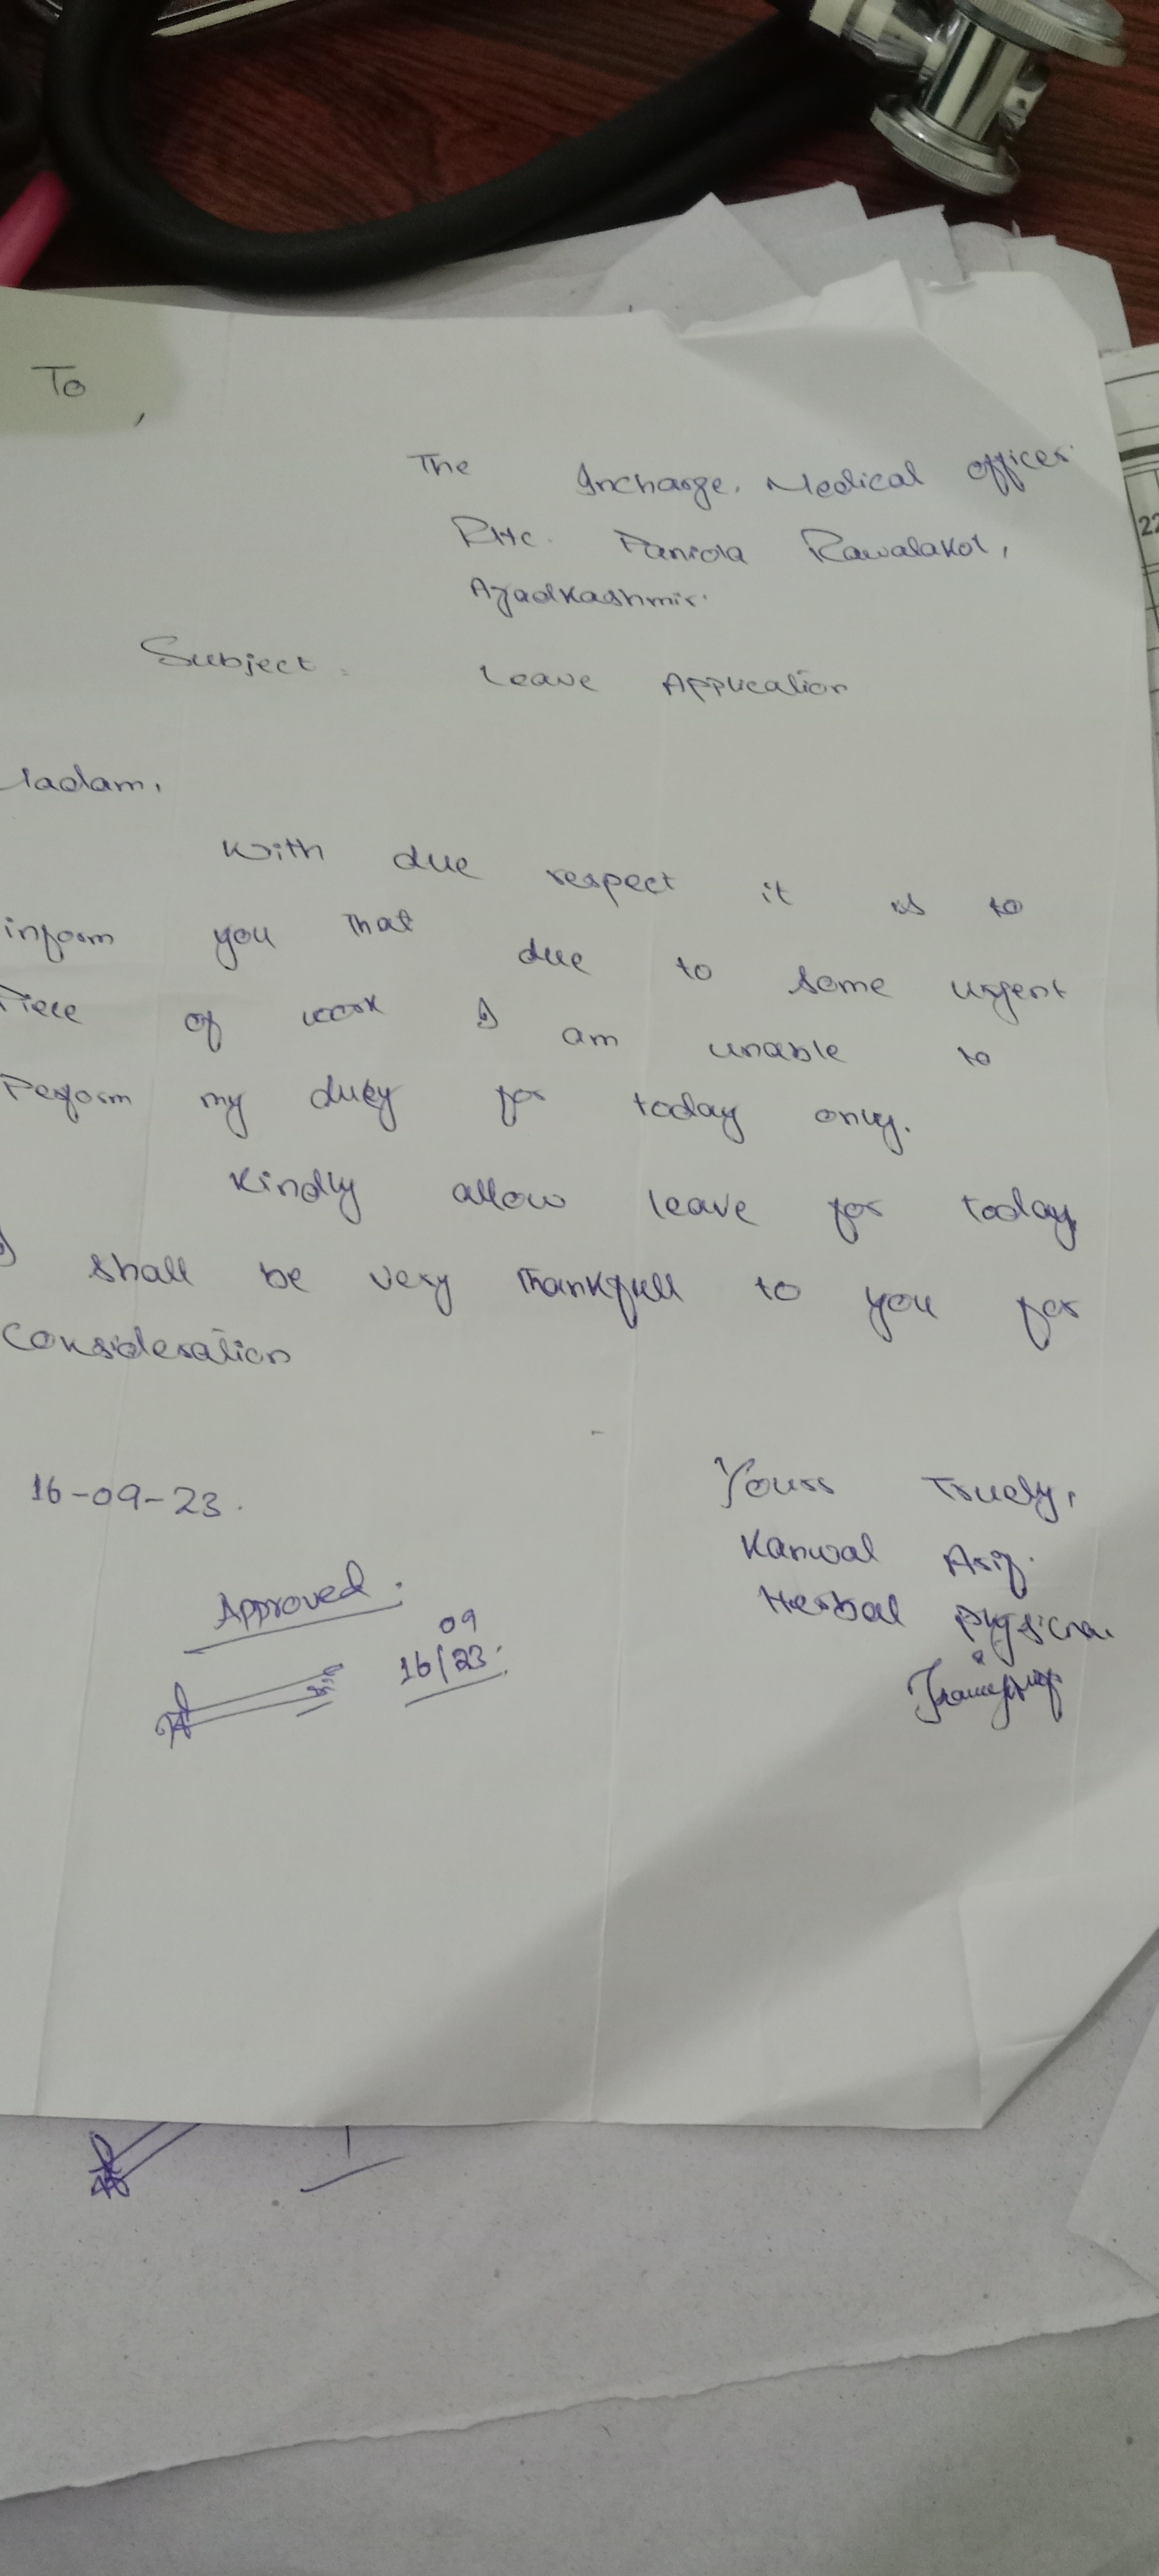 To,
The Incharge. Medical officer
RHC. Paniola Rawalakot,
Azadkashmir.
Subject: Leave Application
Madam,
With due respect it is to
inform you that due to some urgent
Piece of work I am unable to
Perform my duty for today only.
Kindly allow leave for today,
I shall be very Thankfull to you for
Consideration
16-09-23.
Yours Truely,
Kanwal Asif.
Herbal Physician
Approved.
09
16/23.
22